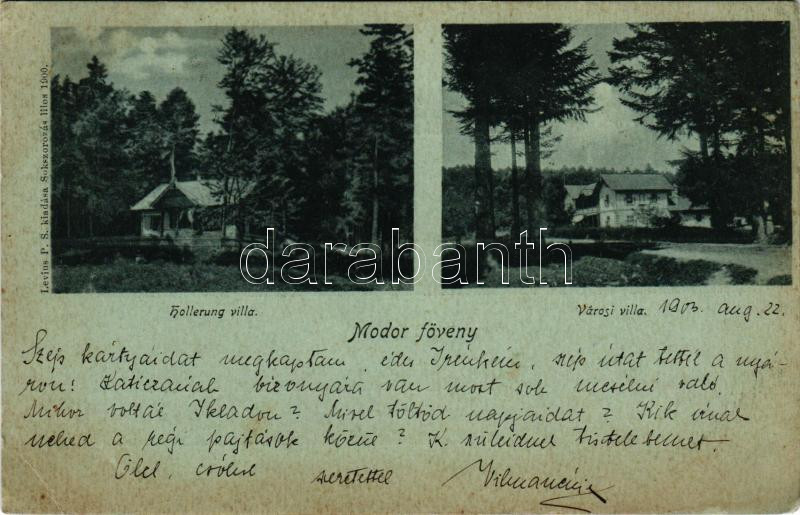 Levius P. S. kiadása Sokszorozás tilos 1900.
darabanth
Hollerung villa.
Városi villa. 1903 aug. 22.
Modor föveny
Szép kártyáidat megkaptam, édes Irénkém, szép útat tettél a nyá-
ron! Katiczának bizonyára van most sok mesélni való.
Mikor voltál Ikladon? Mivel töltöd napjaidat? Kik írnak
neked a régi pajtások közül? K. szüleidnek tiszteletemet.
Ölel, csókol szeretettel Vilmanéni